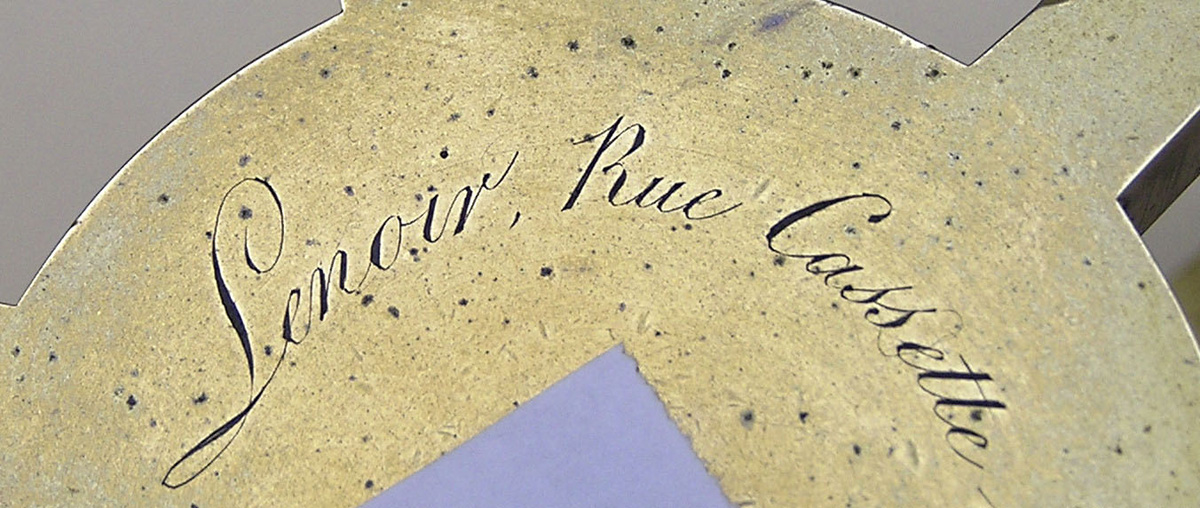 Lenoir, Rue Cassette